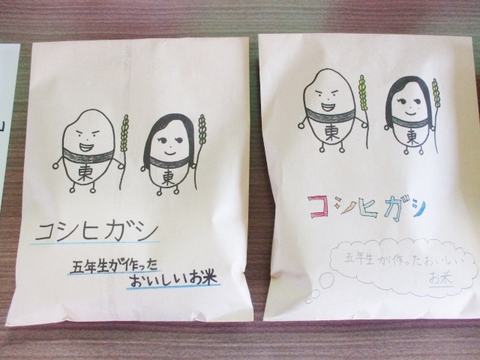 東
東
コシヒガシ
五年生が作った
おいしいお米
東
東
コシヒガシ
五年生が作ったおいしい
お米